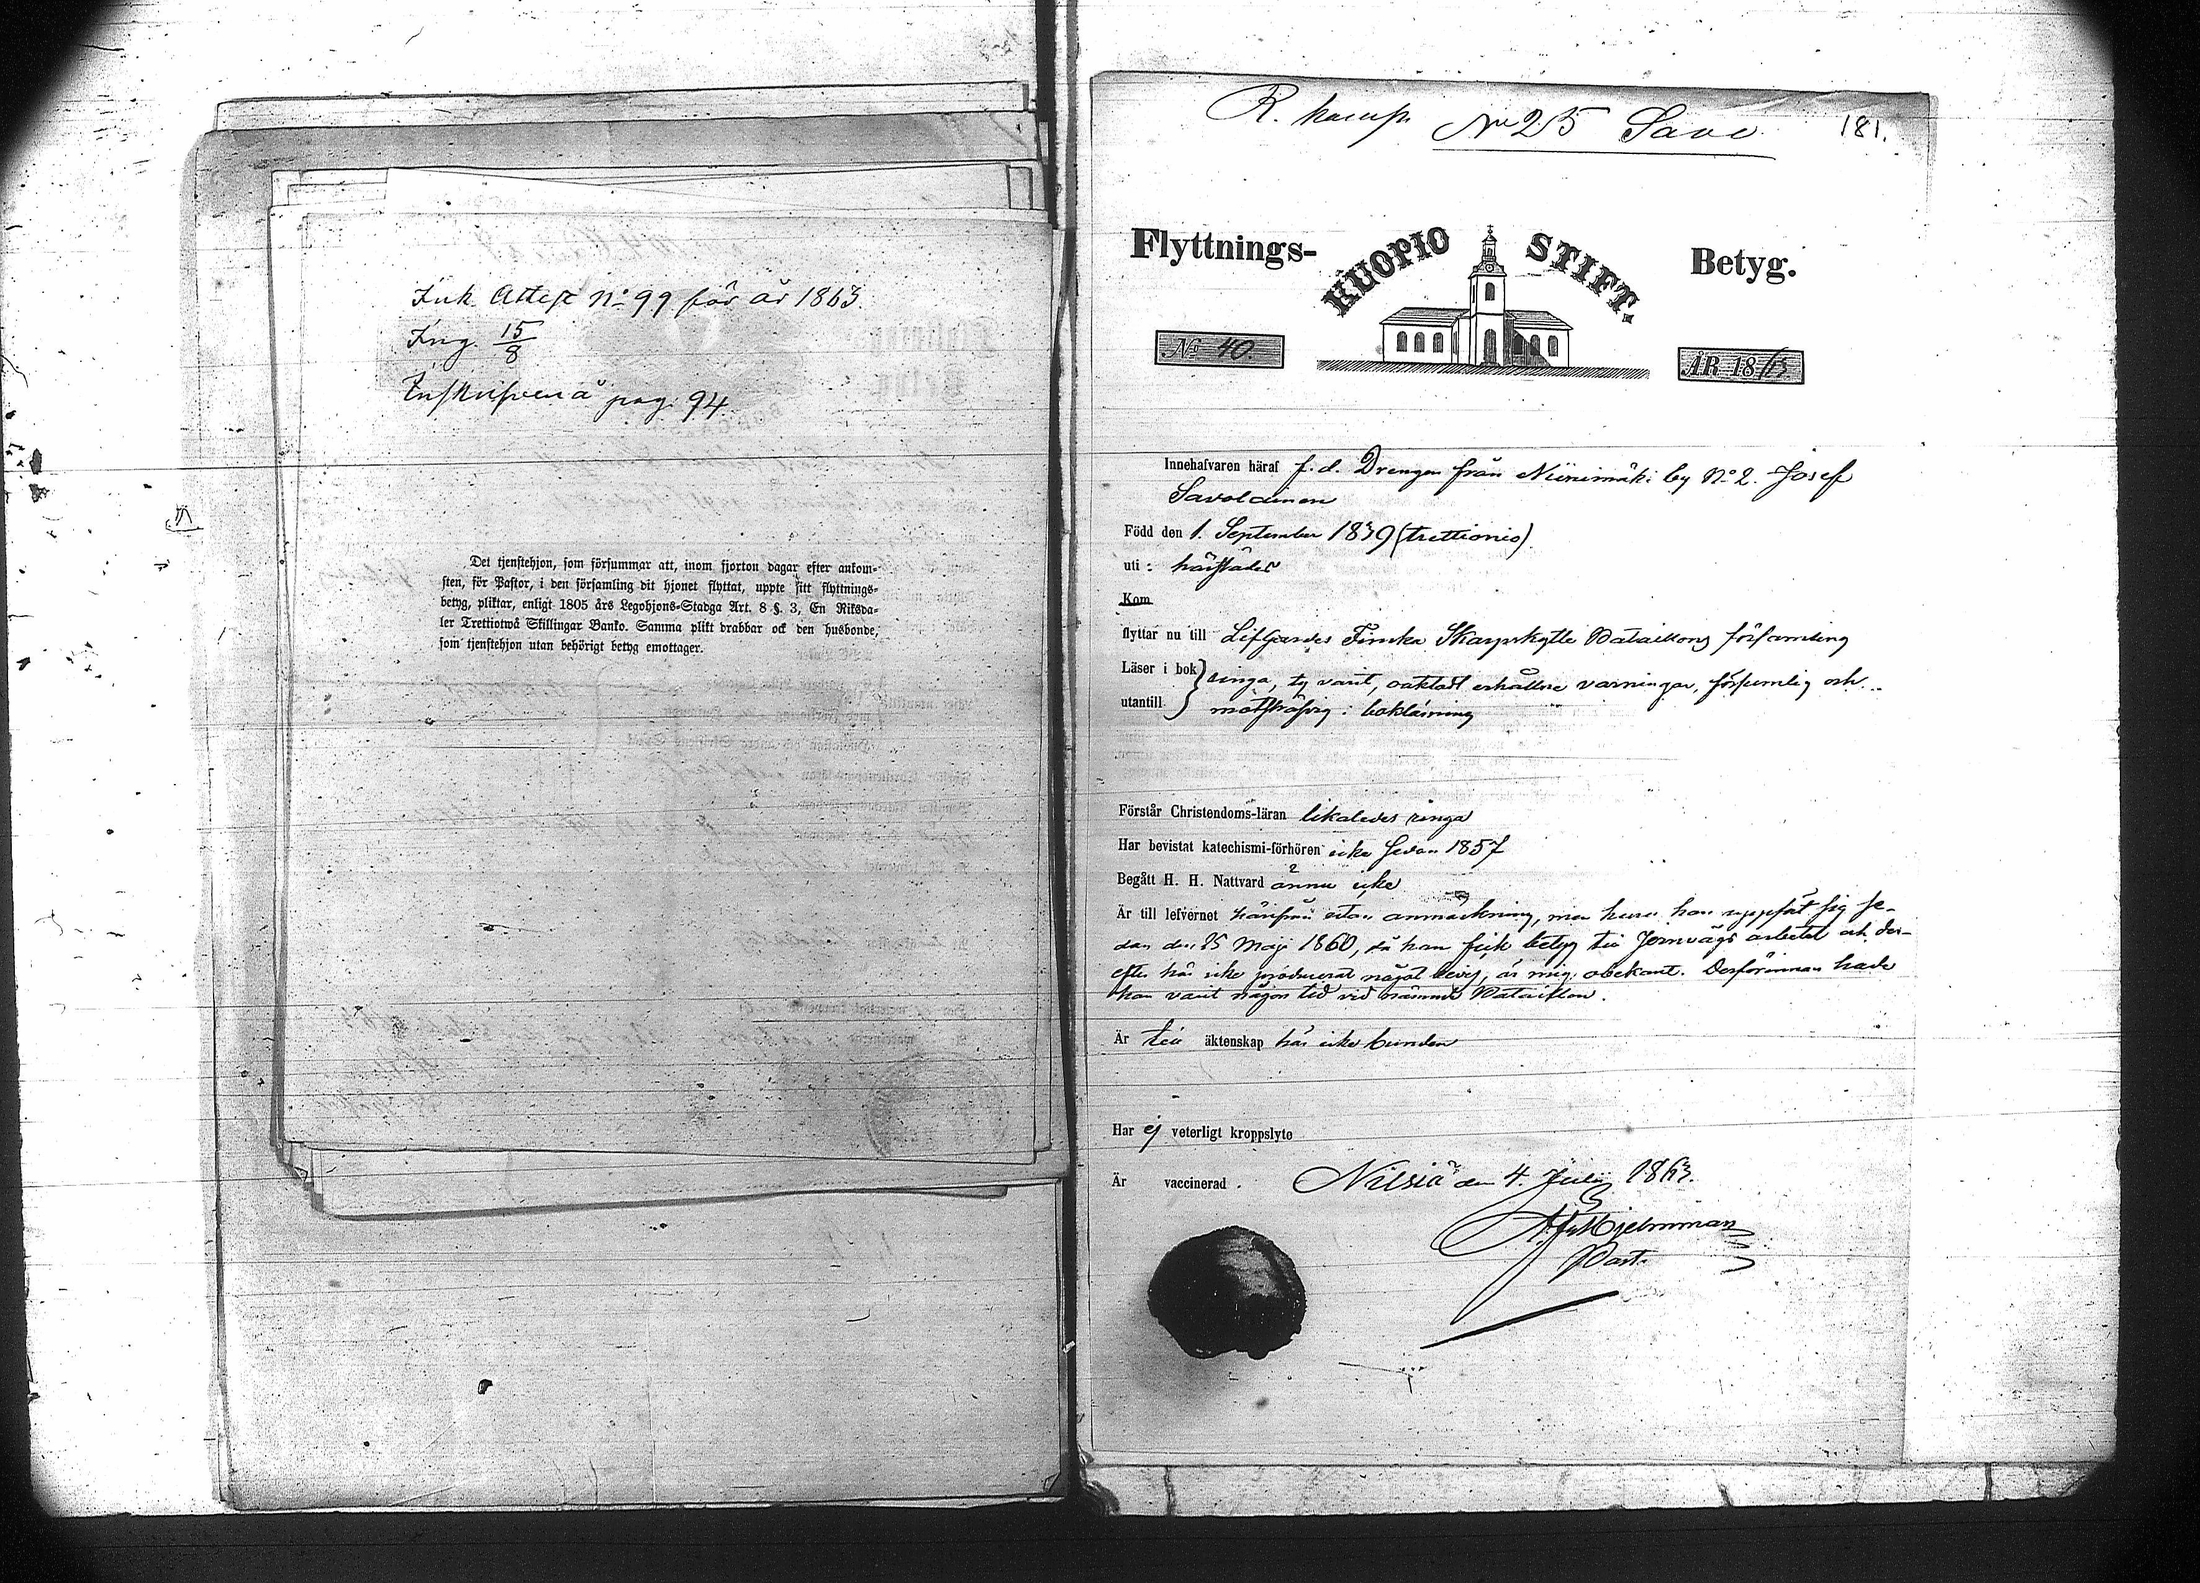 Ink. Attest No 99 för år 1863.
Ing. 15/8
Inskrifven å pag. 94
Det tjenstehjon, som försummar att, inom fjorton dagar efter ankom-
sten, för Pastor, i den församling dit hjonet flyttat, uppte sitt flyttnings-
betyg, pliktar, enligt 1805 års Legohjons-Stadga Art. 8 §. 3, En Riksda-
ler Trettiotwå Skillingar Banko. Samma plikt drabbar ock den husbonde,
som tjenstehjon utan behörigt betyg emottager.
R. komp. No 25 Savo 181.
Flyttnings- KUOPIO STIFT. Betyg.
No 40. ÅR 1863
Innehafvaren häraf f. d. Drengen från Niinimäki by No 2. Josef
Savolainen
Född den 1. September 1839 (trettionio)
uti: härstädes
Kom
flyttar nu till Lifgardes Finska Skarpskytte Bataillons församling
Läser i bok } ringa, ty varit, oaktadt erhållne varningar, försumlig och
utantill } motsträfvig i bokläsning
Förstår Christendoms-läran likaledes ringa
Har bevistat katechismi-förhören icke sedan 1857
Begått H. H. Nattvard ännu icke
Är till lefvernet härifrån utan anmärkning, men huru han uppfört sig se-
dan den 25 Maji 1860, då han fick betyg till Jernvägs arbetet och der-
efter här icke producerat något bevis, är mig obekant. Derförinnan hade
han varit någon tid vid nämnde Bataillon.
Är till äktenskap här icke bunden
Har ej veterligt kroppslyte
Är vaccinerad. Nilsiä den 4. Julii 1863.
Hjelmman
Past.